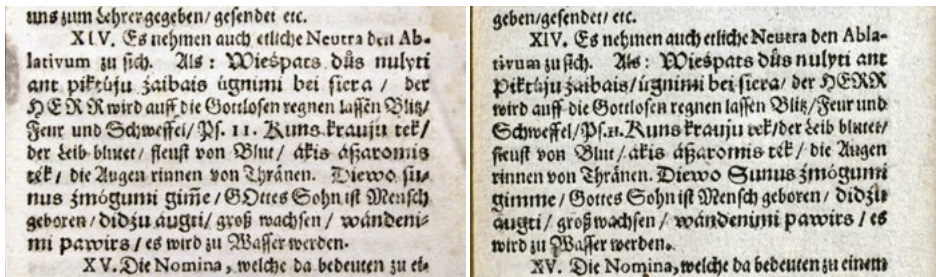 uns zum Lehrer gegeben/ gesendet etc.
XIV. Es nehmen auch etliche Neutra den Ab-
lativum zu sich. Als: Wießpats důs nulyti
ant piktûju żaibais ûgnimi bei siera / der
HERR wird auff die Gottlosen regnen lassen Blitz/
Feur und Schweffel/ Ps. 11. Kuns krauju tek/
der Leib blutet/ fleust von Blut/ ákis áßaromis
ték/ die Augen rinnen von Thränen. Diewo sū-
nus żmógumi gim̃e/ GOttes Sohn ist Mensch
geboren/ didżu áugti/ groß wachsen/ wándeni-
mi pawirs/ es wird zu Wasser werden.
XV. Die Nomina, welche da bedeuten zu ei-
geben/gesendet/ etc.
XIV. Es nehmen auch etliche Neutra den Abla-
tivum zu sich. Als: Wießpats důs nulyti ant
piktûju żaibais/ûgnimi bei siera/ der HERR
wird auff die Gottlosen regnen lassen Blitz/Feur und
Schweffel/Ps.11. Kuns krauju tek/der Leib blutet/
fleust von Blut/ ákis áßaromis ték/ die Augen
rinnen von Thränen. Diewo Sunus żmógumi
gimme/ Gottes Sohn ist Mensch geboren/ didżu
áugti/ groß wachsen/ wándenimi pawirs/ es
wird zu Wasser werden.
XV. Die Nomina, welche da bedeuten zu einem